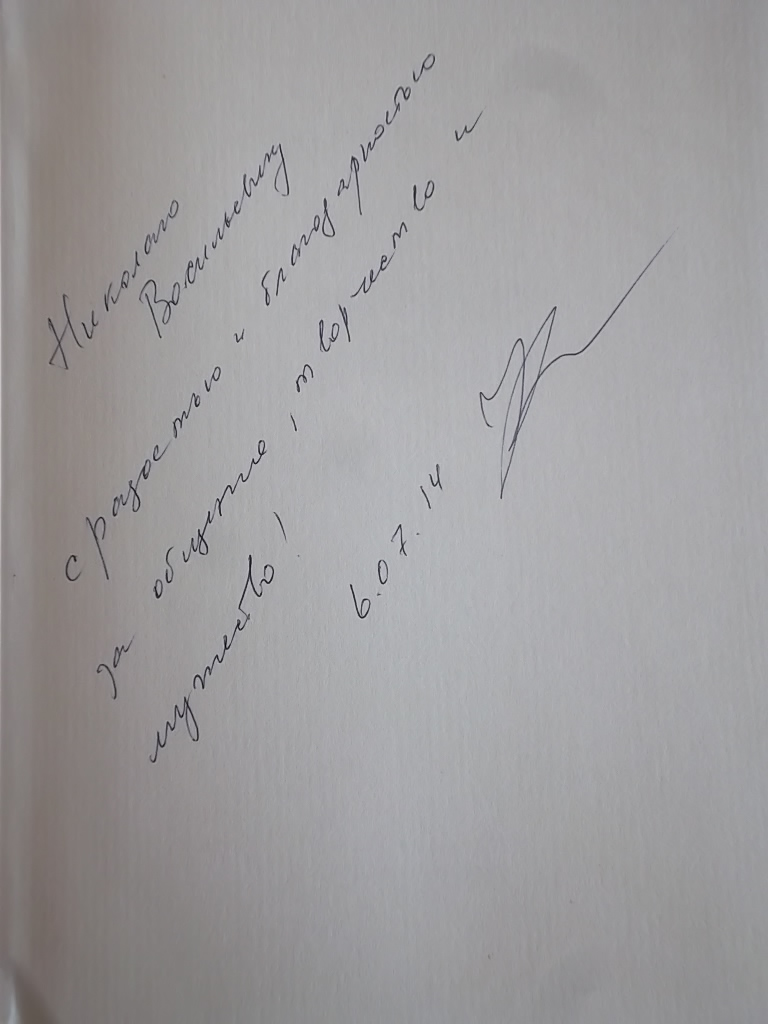 Николаю
Васильевичу
с радостью и благодарностью
за общение, творчество и
мужество!
6.07.14